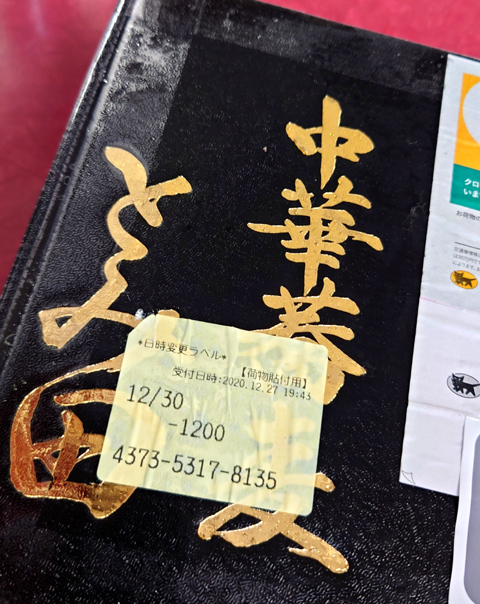 中華蕎麦
とみ田
*日時変更ラベル*
【荷物貼付用】
受付日時:2020.12.27 19:43
12/30
-1200
4373-5317-8135
クロ
いま
お荷物の